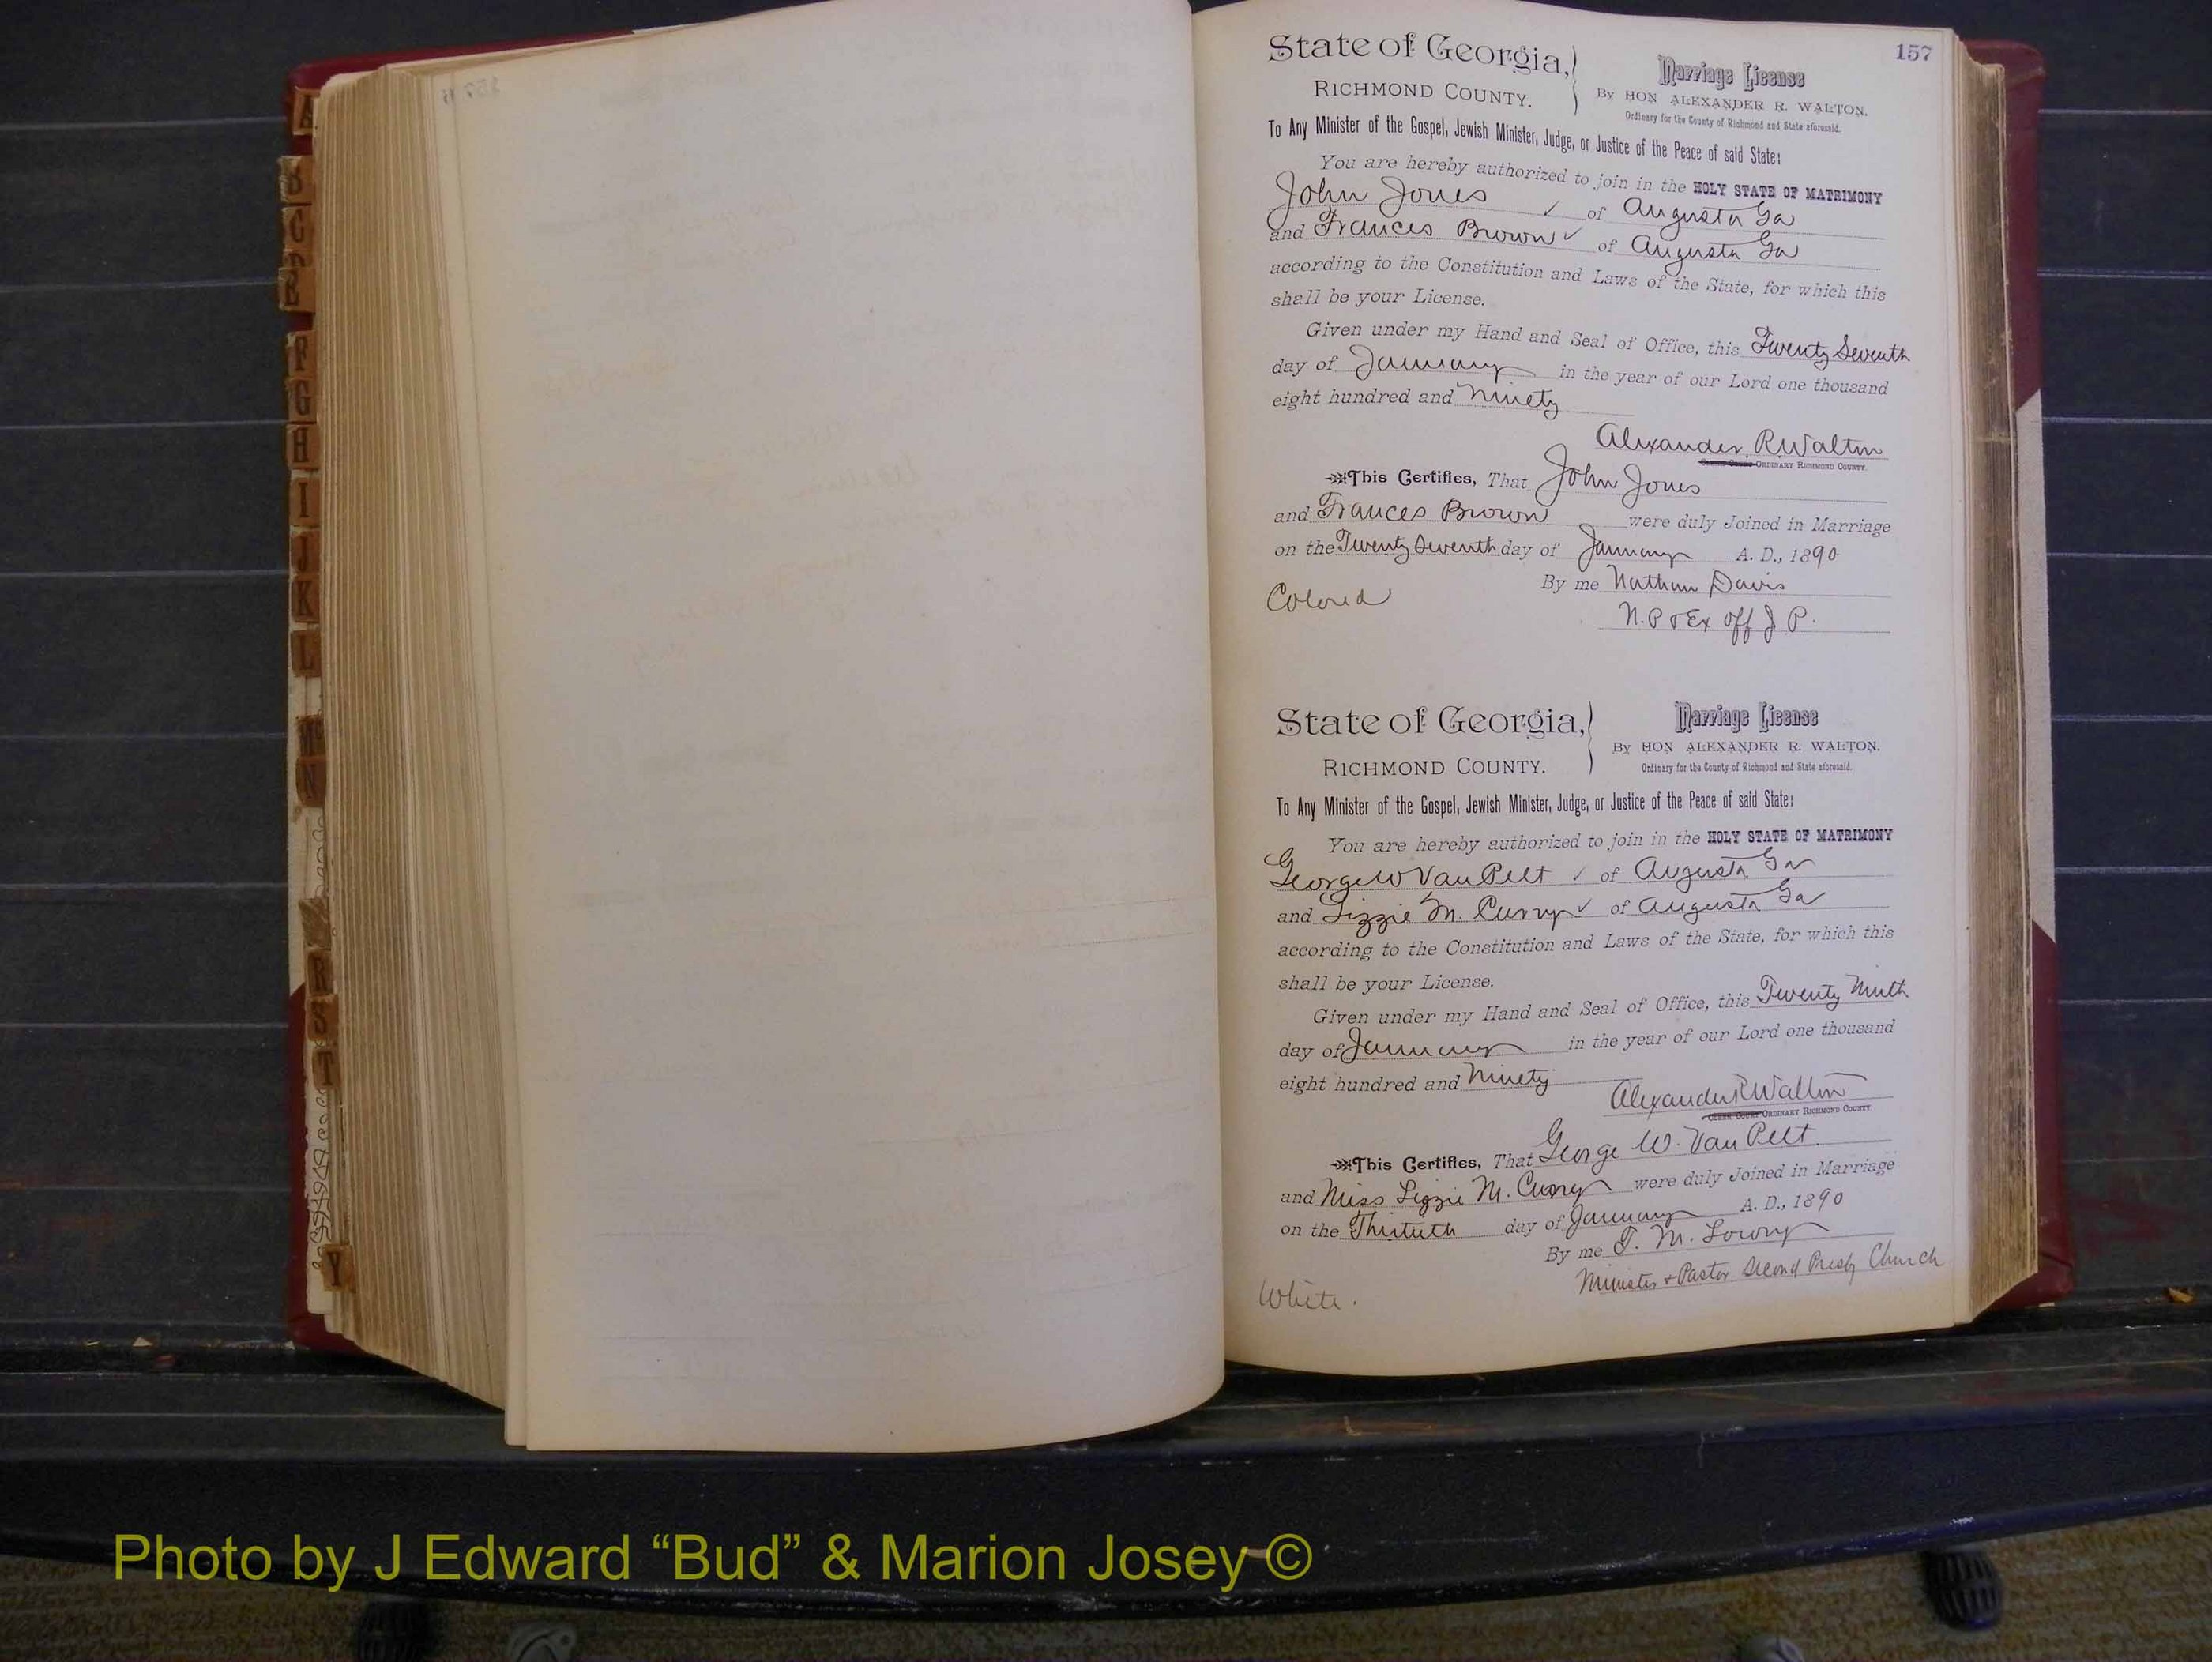 157
State of Georgia,
RICHMOND COUNTY.
Marriage License
By HON ALEXANDER R. WALTON.
Ordinary for the County of Richmond and State aforesaid.
To Any Minister of the Gospel, Jewish Minister, Judge, or Justice of the Peace of said State:
You are hereby authorized to join in the HOLY STATE OF MATRIMONY
John Jones ✓ of Augusta Ga
and Frances Brown ✓ of Augusta Ga
according to the Constitution and Laws of the State, for which this
shall be your License.
Given under my Hand and Seal of Office, this Twenty Seventh
day of January in the year of our Lord one thousand
eight hundred and Ninety
Alexander R Walton
ORDINARY RICHMOND COUNTY.
This Certifies, That John Jones
and Frances Brown were duly Joined in Marriage
on the Twenty Seventh day of January A. D., 1890
By me Nathan Davis
Colored
N. P & Ex off J P.
State of Georgia,
RICHMOND COUNTY.
Marriage License
By HON ALEXANDER R. WALTON.
Ordinary for the County of Richmond and State aforesaid.
To Any Minister of the Gospel, Jewish Minister, Judge, or Justice of the Peace of said State:
You are hereby authorized to join in the HOLY STATE OF MATRIMONY
George W Van Pelt ✓ of Augusta Ga
and Lizzie M. Curry ✓ of Augusta Ga
according to the Constitution and Laws of the State, for which this
shall be your License.
Given under my Hand and Seal of Office, this Twenty Ninth
day of January in the year of our Lord one thousand
eight hundred and Ninety
Alexander R Walton
CLERK COURT ORDINARY RICHMOND COUNTY.
This Certifies, That George W. Van Pelt.
and Miss Lizzie M. Curry were duly Joined in Marriage
on the Thirtieth day of January A. D., 1890
By me T. M. Lowry
Minister & Pastor Second Presby Church
White.
A
B
C
E
F
G
H
I
J
K
L
Mc
N
R
S
T
Y
Photo by J Edward “Bud” & Marion Josey ©